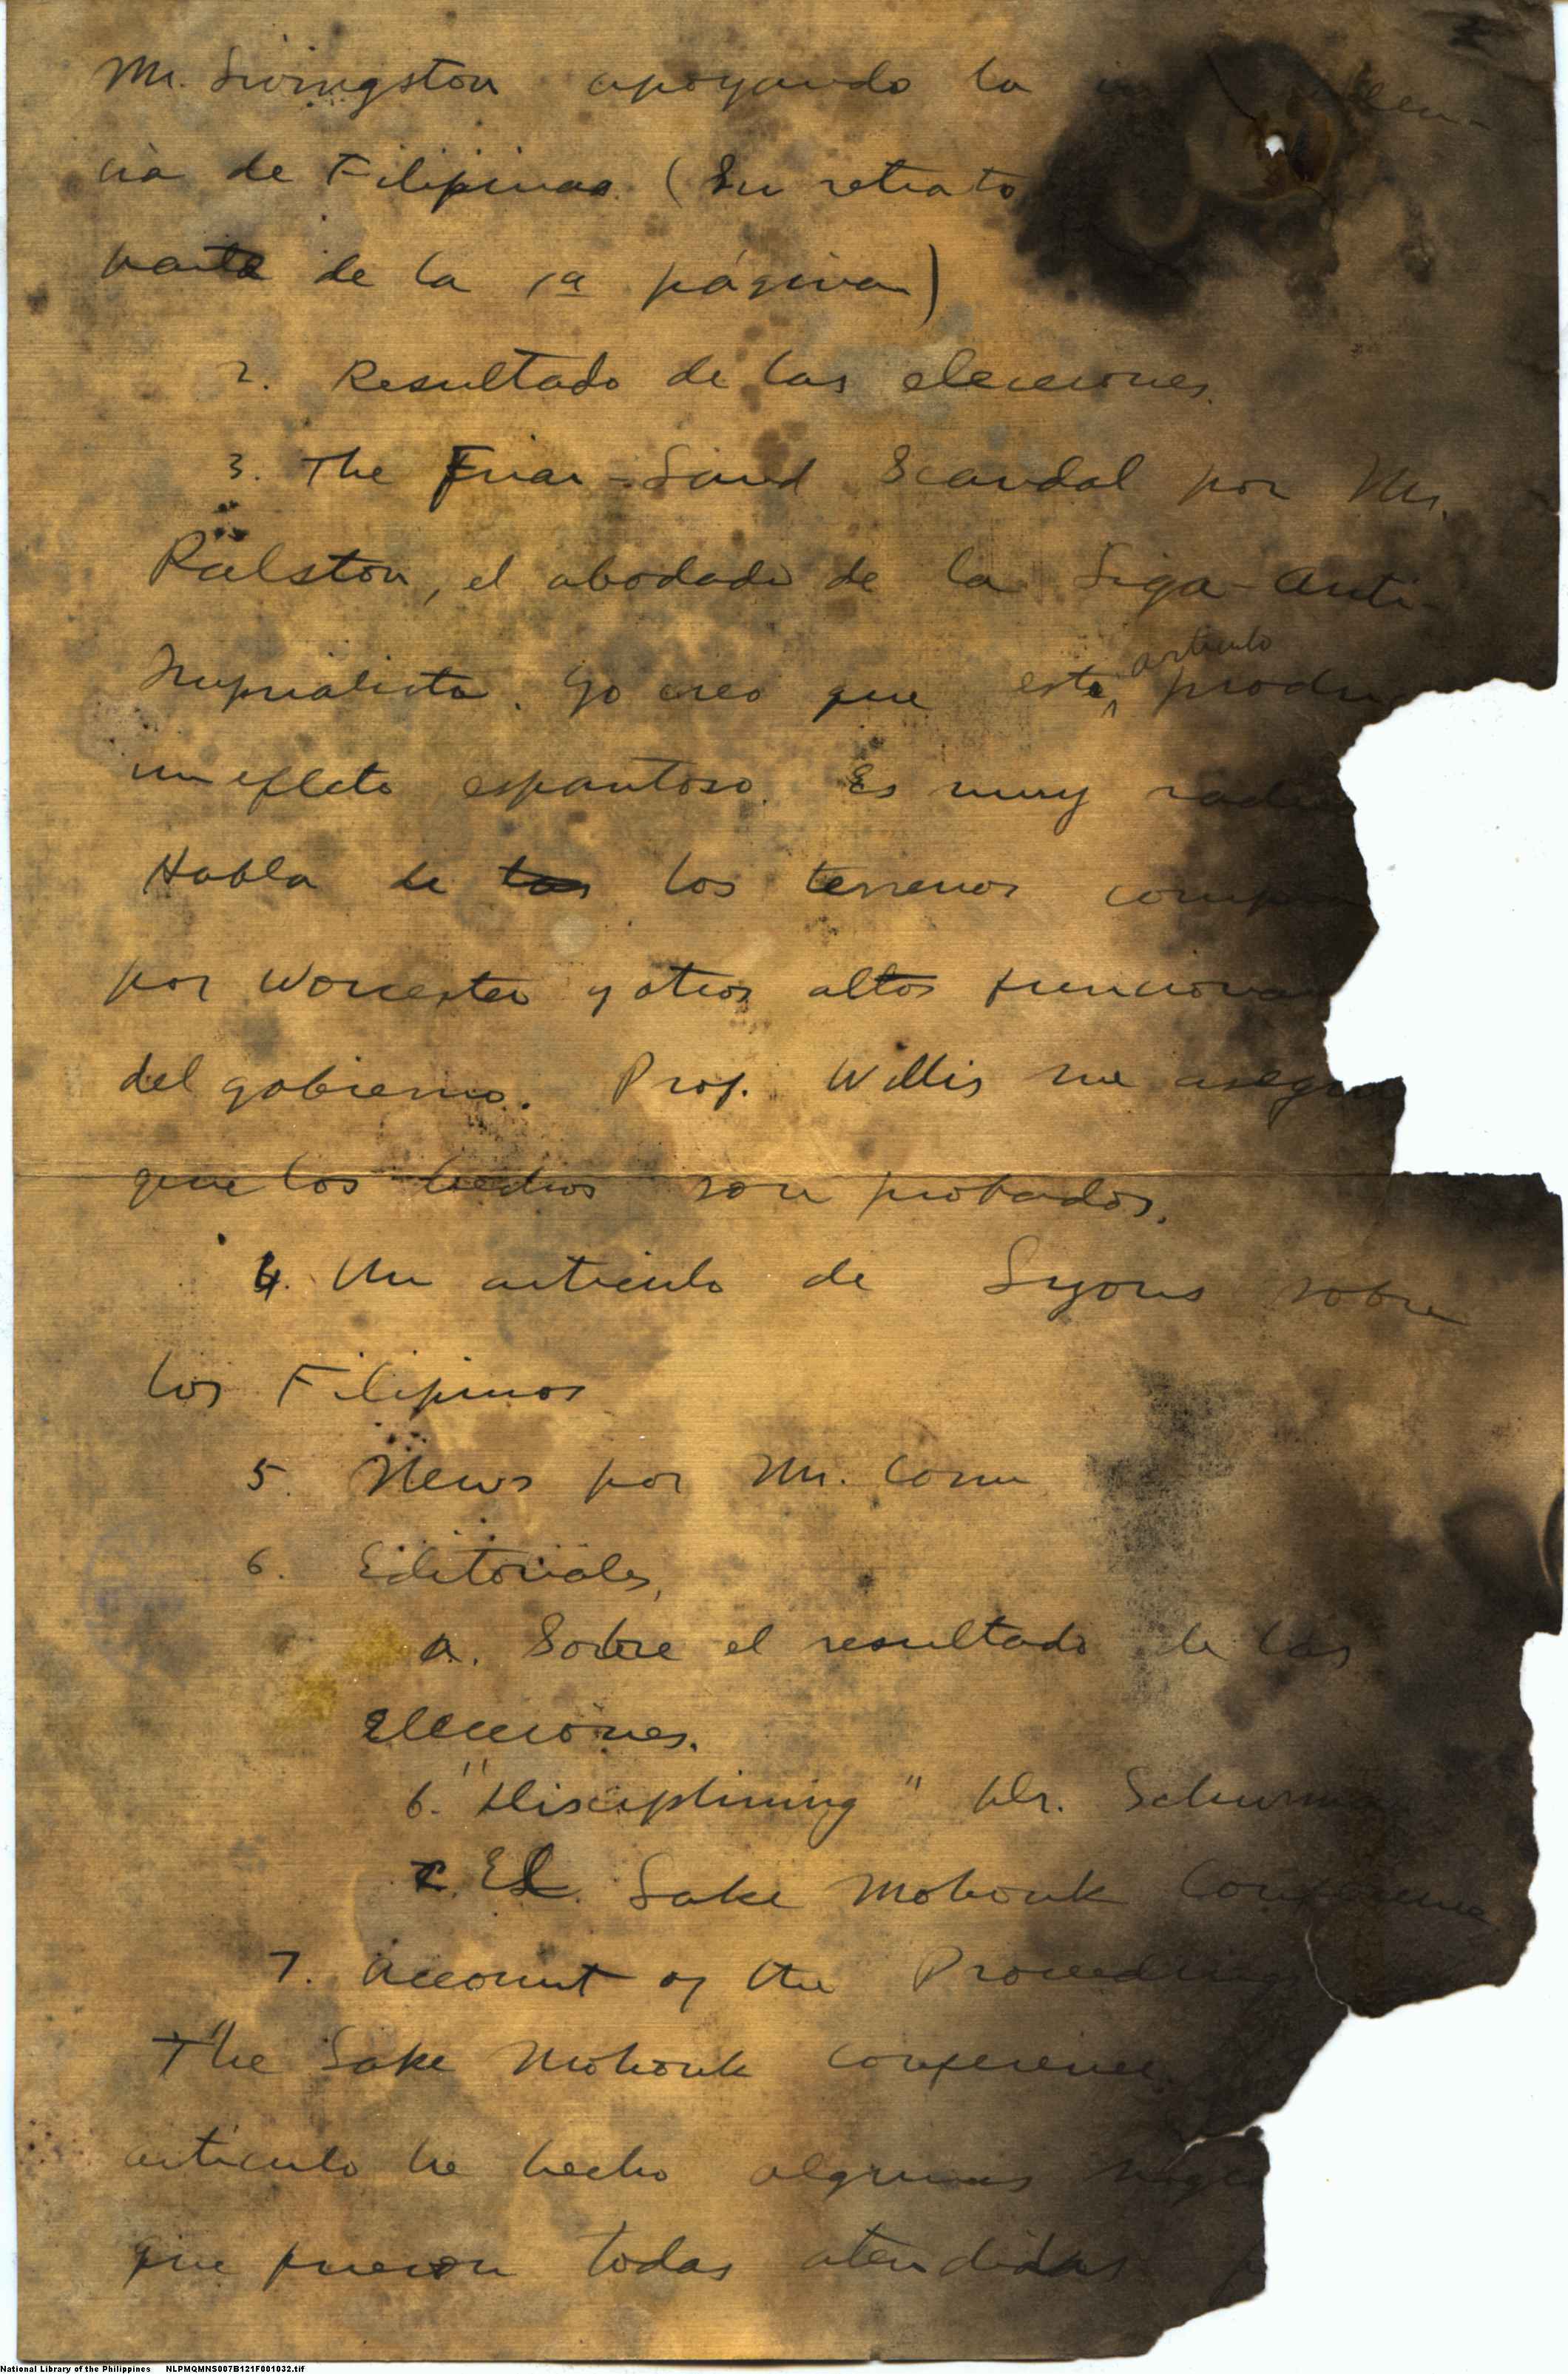 Mr. Livingston apoyando la
cia de Filipinas. (Su retrato
parte de la 1a página)
2. Resultado de las elecciones.
3. The Friar-Land Scandal por Mr.
Ralston, el abodado de la Liga-Anti-
Imperialista. Yo creo que este artículo
un efecto espantoso. Es muy
Habla de los los terrenos
por Worcester y otros altos
del gobierno. Prof. Willis me
que los hechos son probados.
4. Un artículo de Lyons sobre
los Filipinos
5. News por Mr. Conn
6. Editoriales,
a. Sobre el resultado de las
Elecciones.
b. "Disciplining" Dr. Schurman
c. El Lake Mohonk Conference
7. Account of the Proceedings
The Lake Mohonk Conference.
artículo he hecho algunas
que fueron todas atendidas
National Library of the Philippines NLPMQMNS007B121F001032.tif